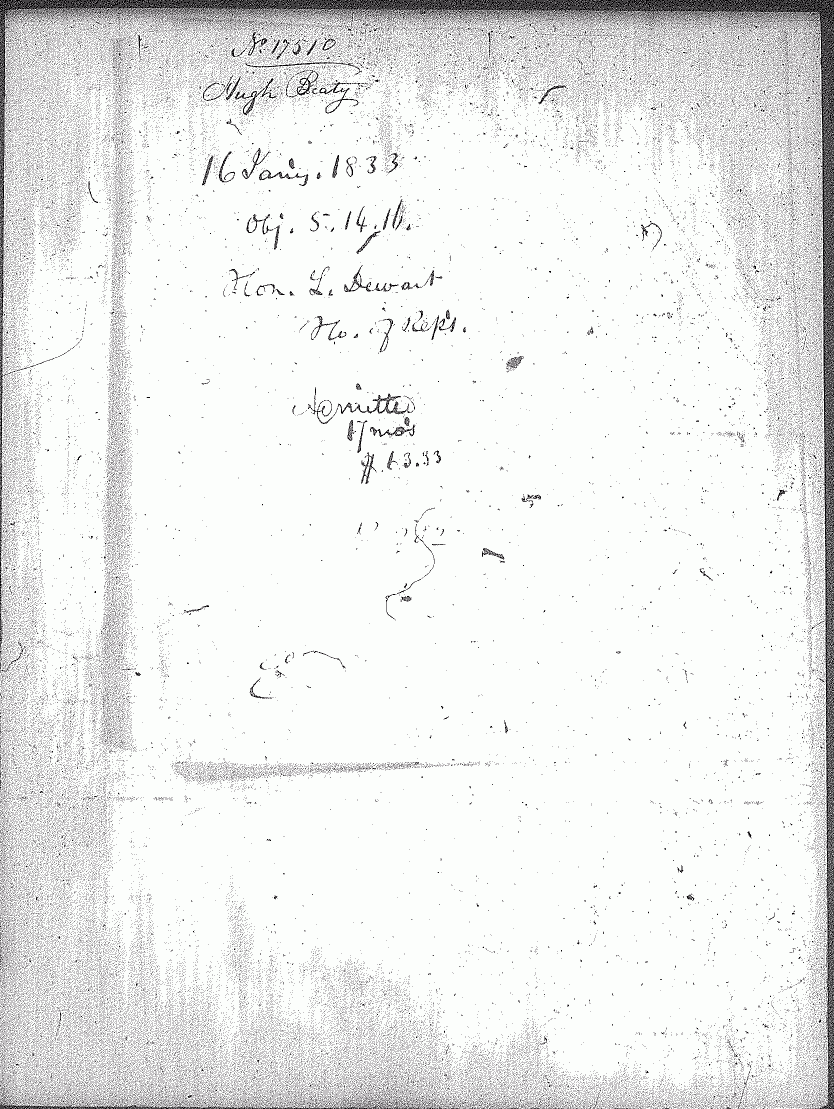 No. 17510
Hugh Beaty
16 Jany. 1833
Obj. 5. 14. 16.
Hon. L. Dewart
Ho. of Reps.
Admitted
17 mo's
$ 3.33